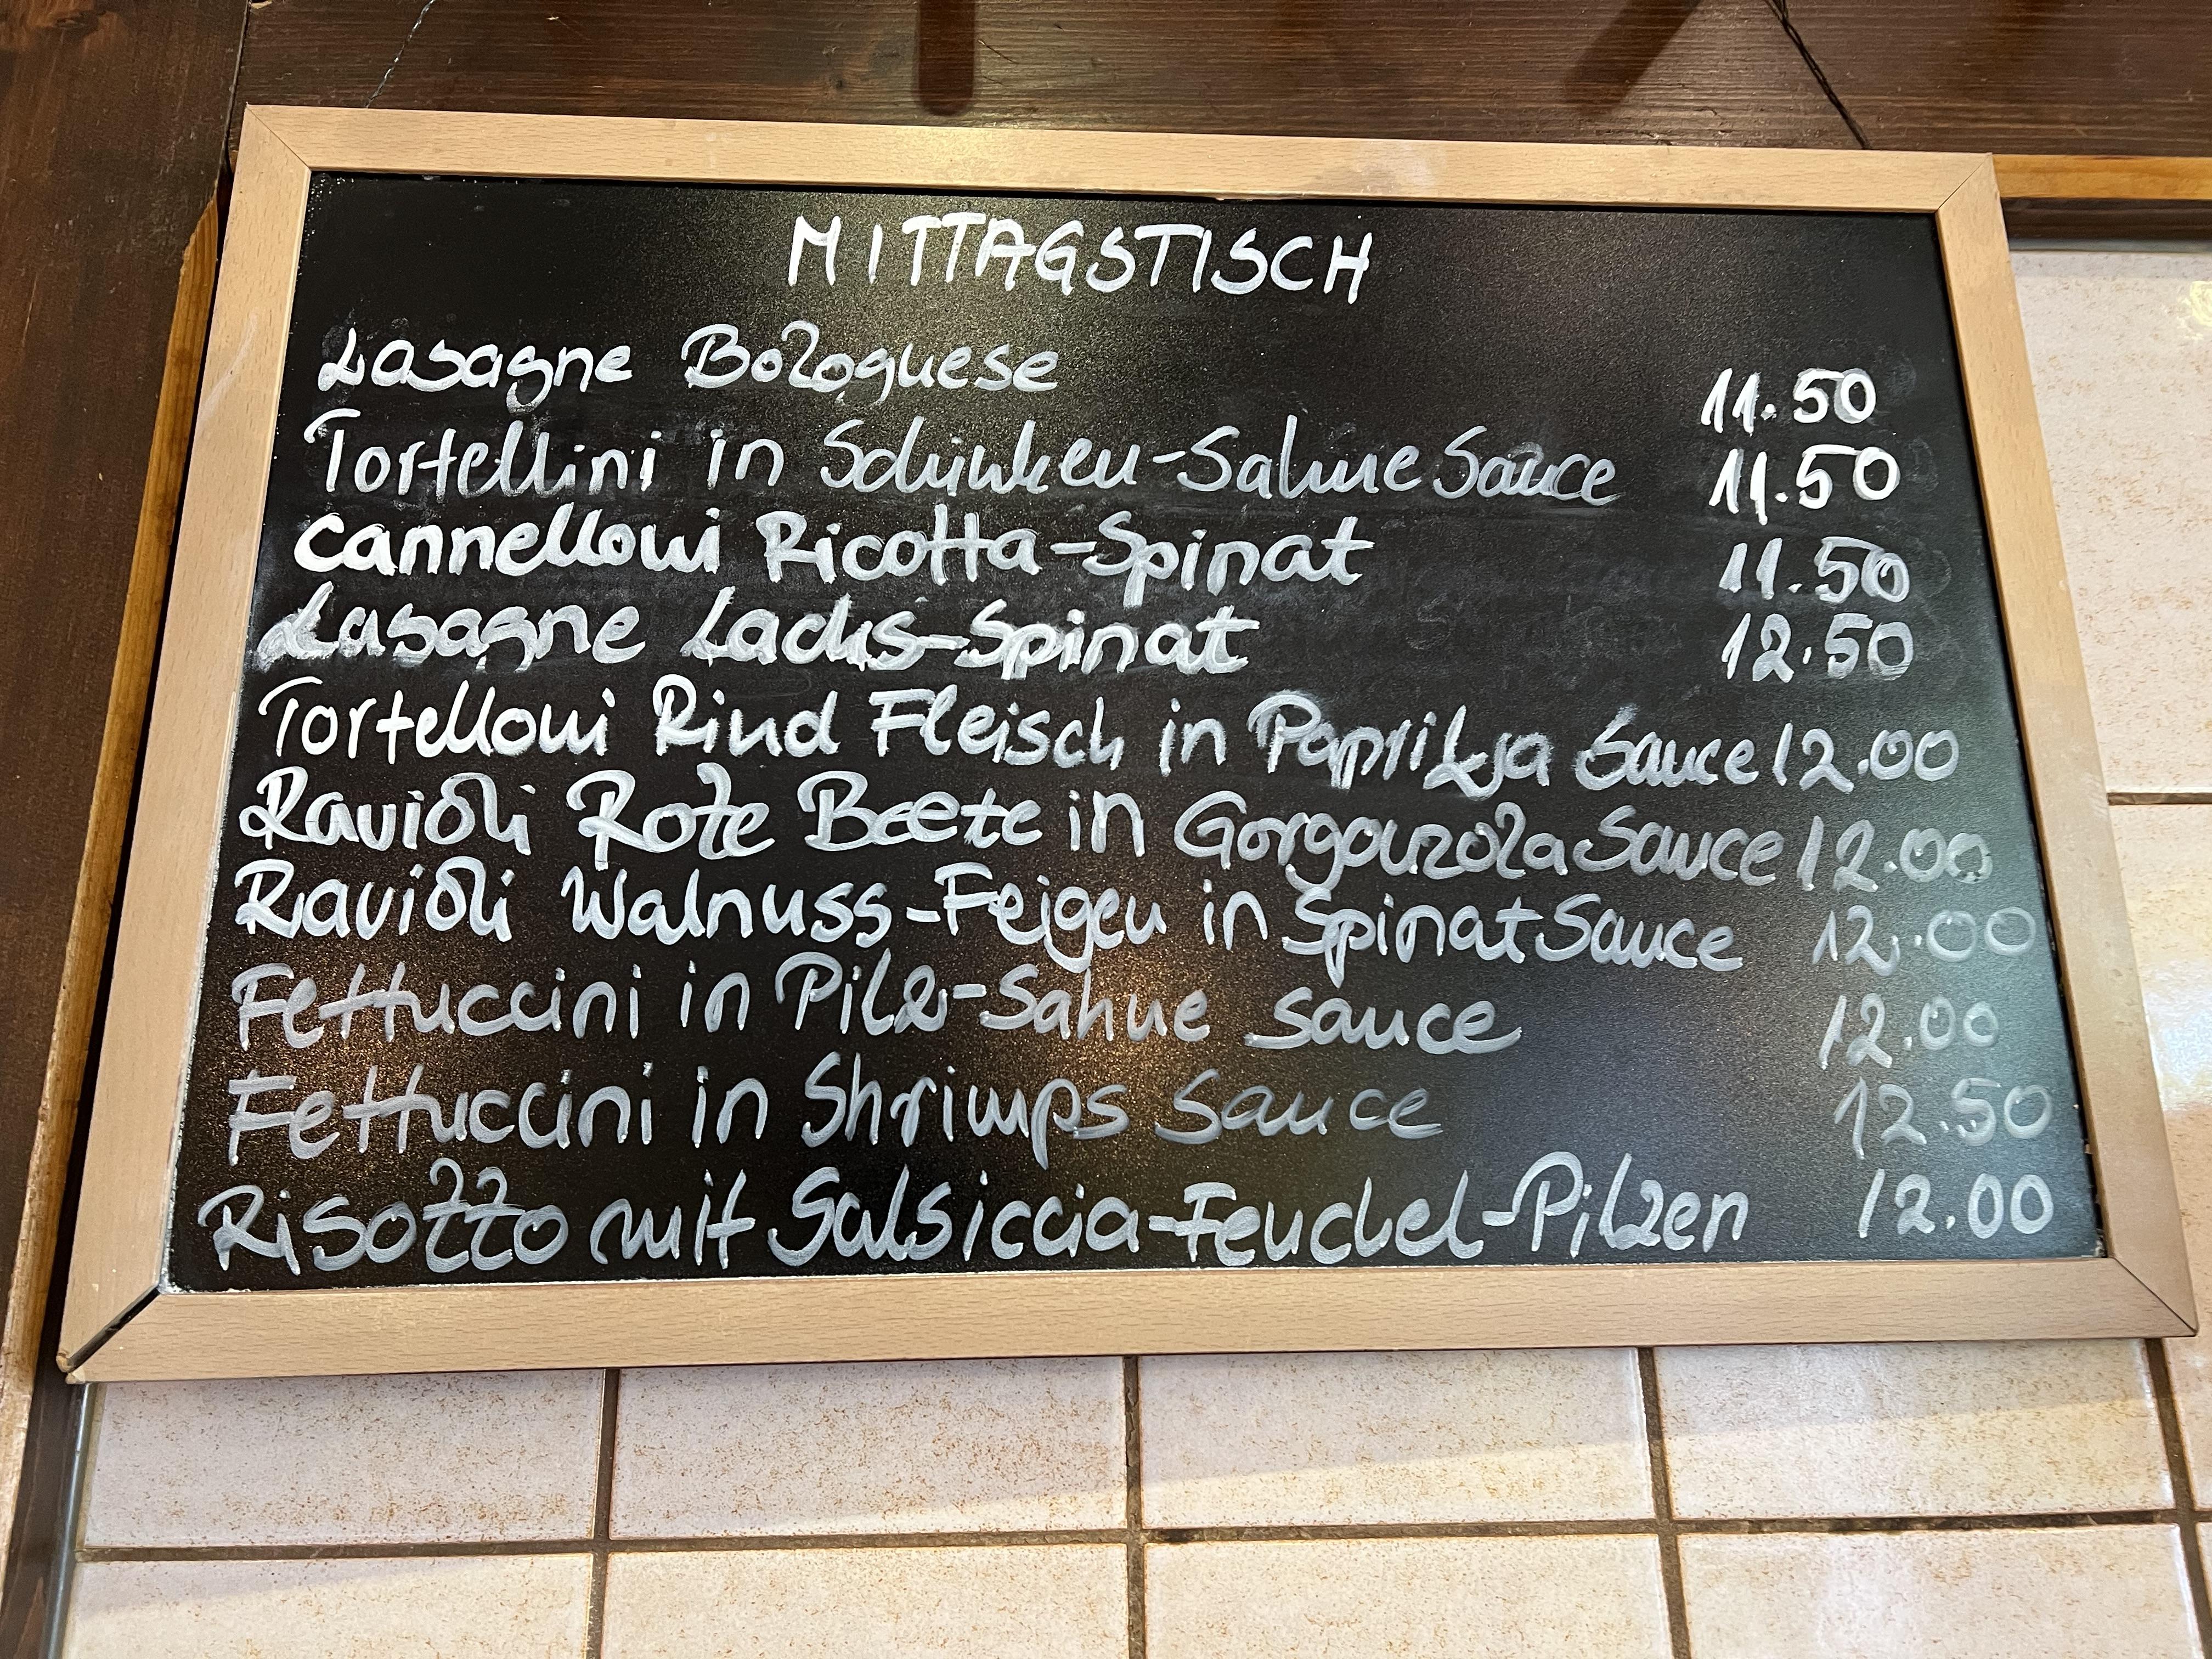 MITTAGSTISCH
Lasagne Bolognese 11.50
Tortellini in Schinken-Sahne Sauce 11.50
Cannelloni Ricotta-Spinat 11.50
Lasagne Lachs-Spinat 12.50
Tortelloni Rind Fleisch in Paprika Sauce 12.00
Ravioli Rote Beete in Gorgonzola Sauce 12.00
Ravioli Walnuss-Feigen in Spinat Sauce 12.00
Fettuccini in Pilz-Sahne Sauce 12.00
Fettuccini in Shrimps Sauce 12.50
Risotto mit Salsiccia-Fenchel-Pilzen 12.00